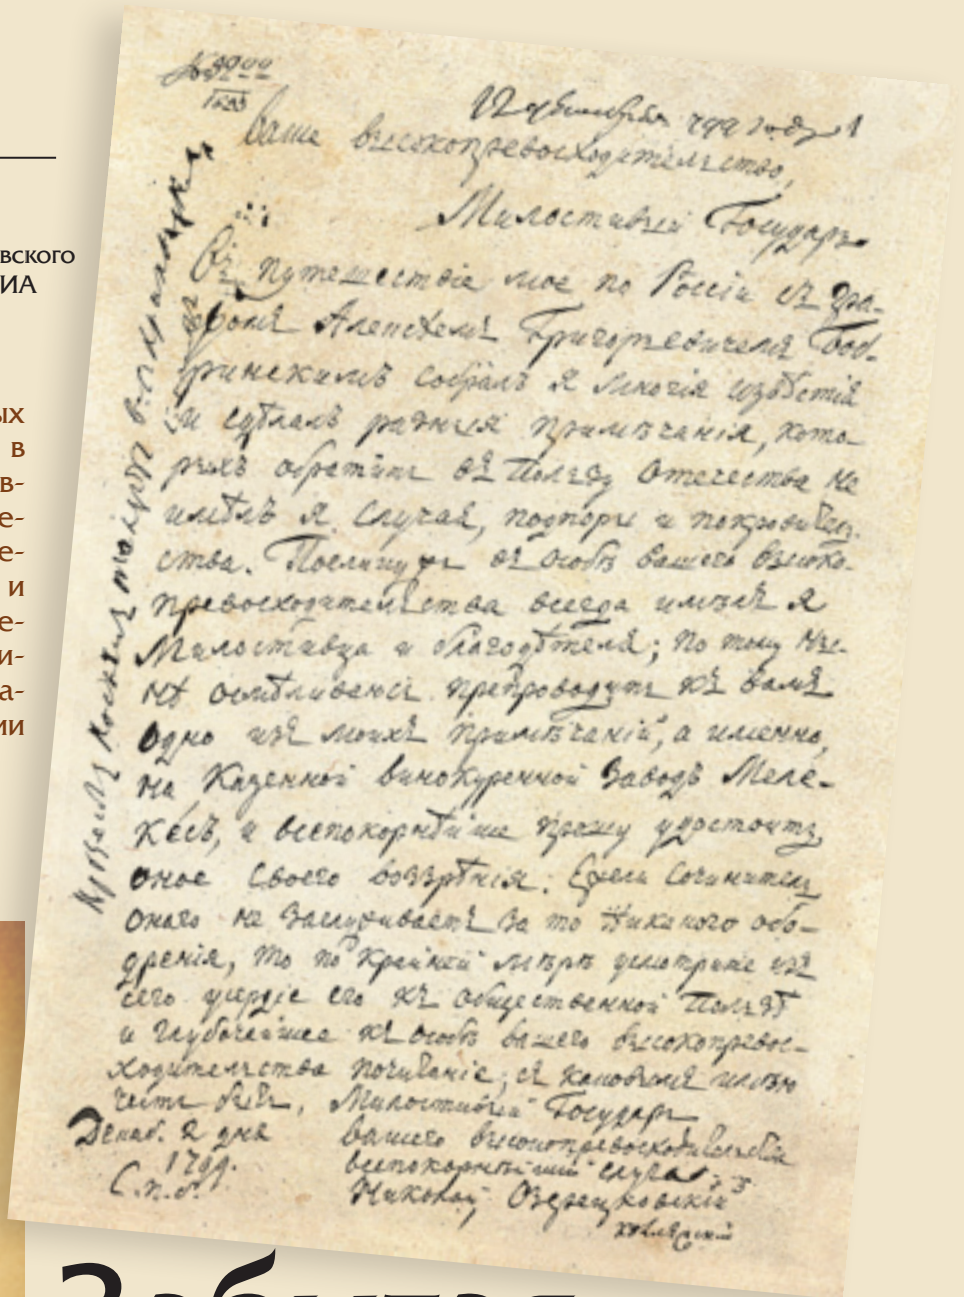 12 декабря 799 году
Ваше высокопревосходительство,
Милостивый Государь.
Въ путешествіе мое по Россіи съ Гра-
фомъ Алексѣемъ Григорьевичемъ Боб-
ринскимъ собралъ я многія извѣстія
и сдѣлалъ разныя примѣчанія, кото-
рыхъ обратить въ пользу Отечества не
имѣлъ я случая, подпоры и покровитель-
ства. Поелику въ особѣ вашего высоко-
превосходительства всегда имѣлъ я
Милостивца и благодѣтеля; по тому ны-
нѣ осмѣливаюсь препроводить къ вамъ
одно изъ моихъ примѣчаній, а именно,
на Казенной винокуренной Заводъ Меле-
кесъ, и всепокорнѣйше прошу удостоить
оное своего воззрѣнія. Ежели Сочинитель
онаго не заслуживаетъ за то никакого обо-
дренія, то по крайней мѣрѣ усмотрите изъ
сего усердіе его къ общественной пользѣ
и глубочайшее къ особѣ вашего высокопревос-
ходительства почитаніе, съ каковымъ имѣю
честь быть, Милостивый Государь
Декаб. 2 дня вашего высокопревосходительства
1799. всепокорнѣйшій слуга
С.п.б. Николай Озерецковскій
вского
ИА
ых
в
в-
е-
е-
и
е-
и-
а-
ии